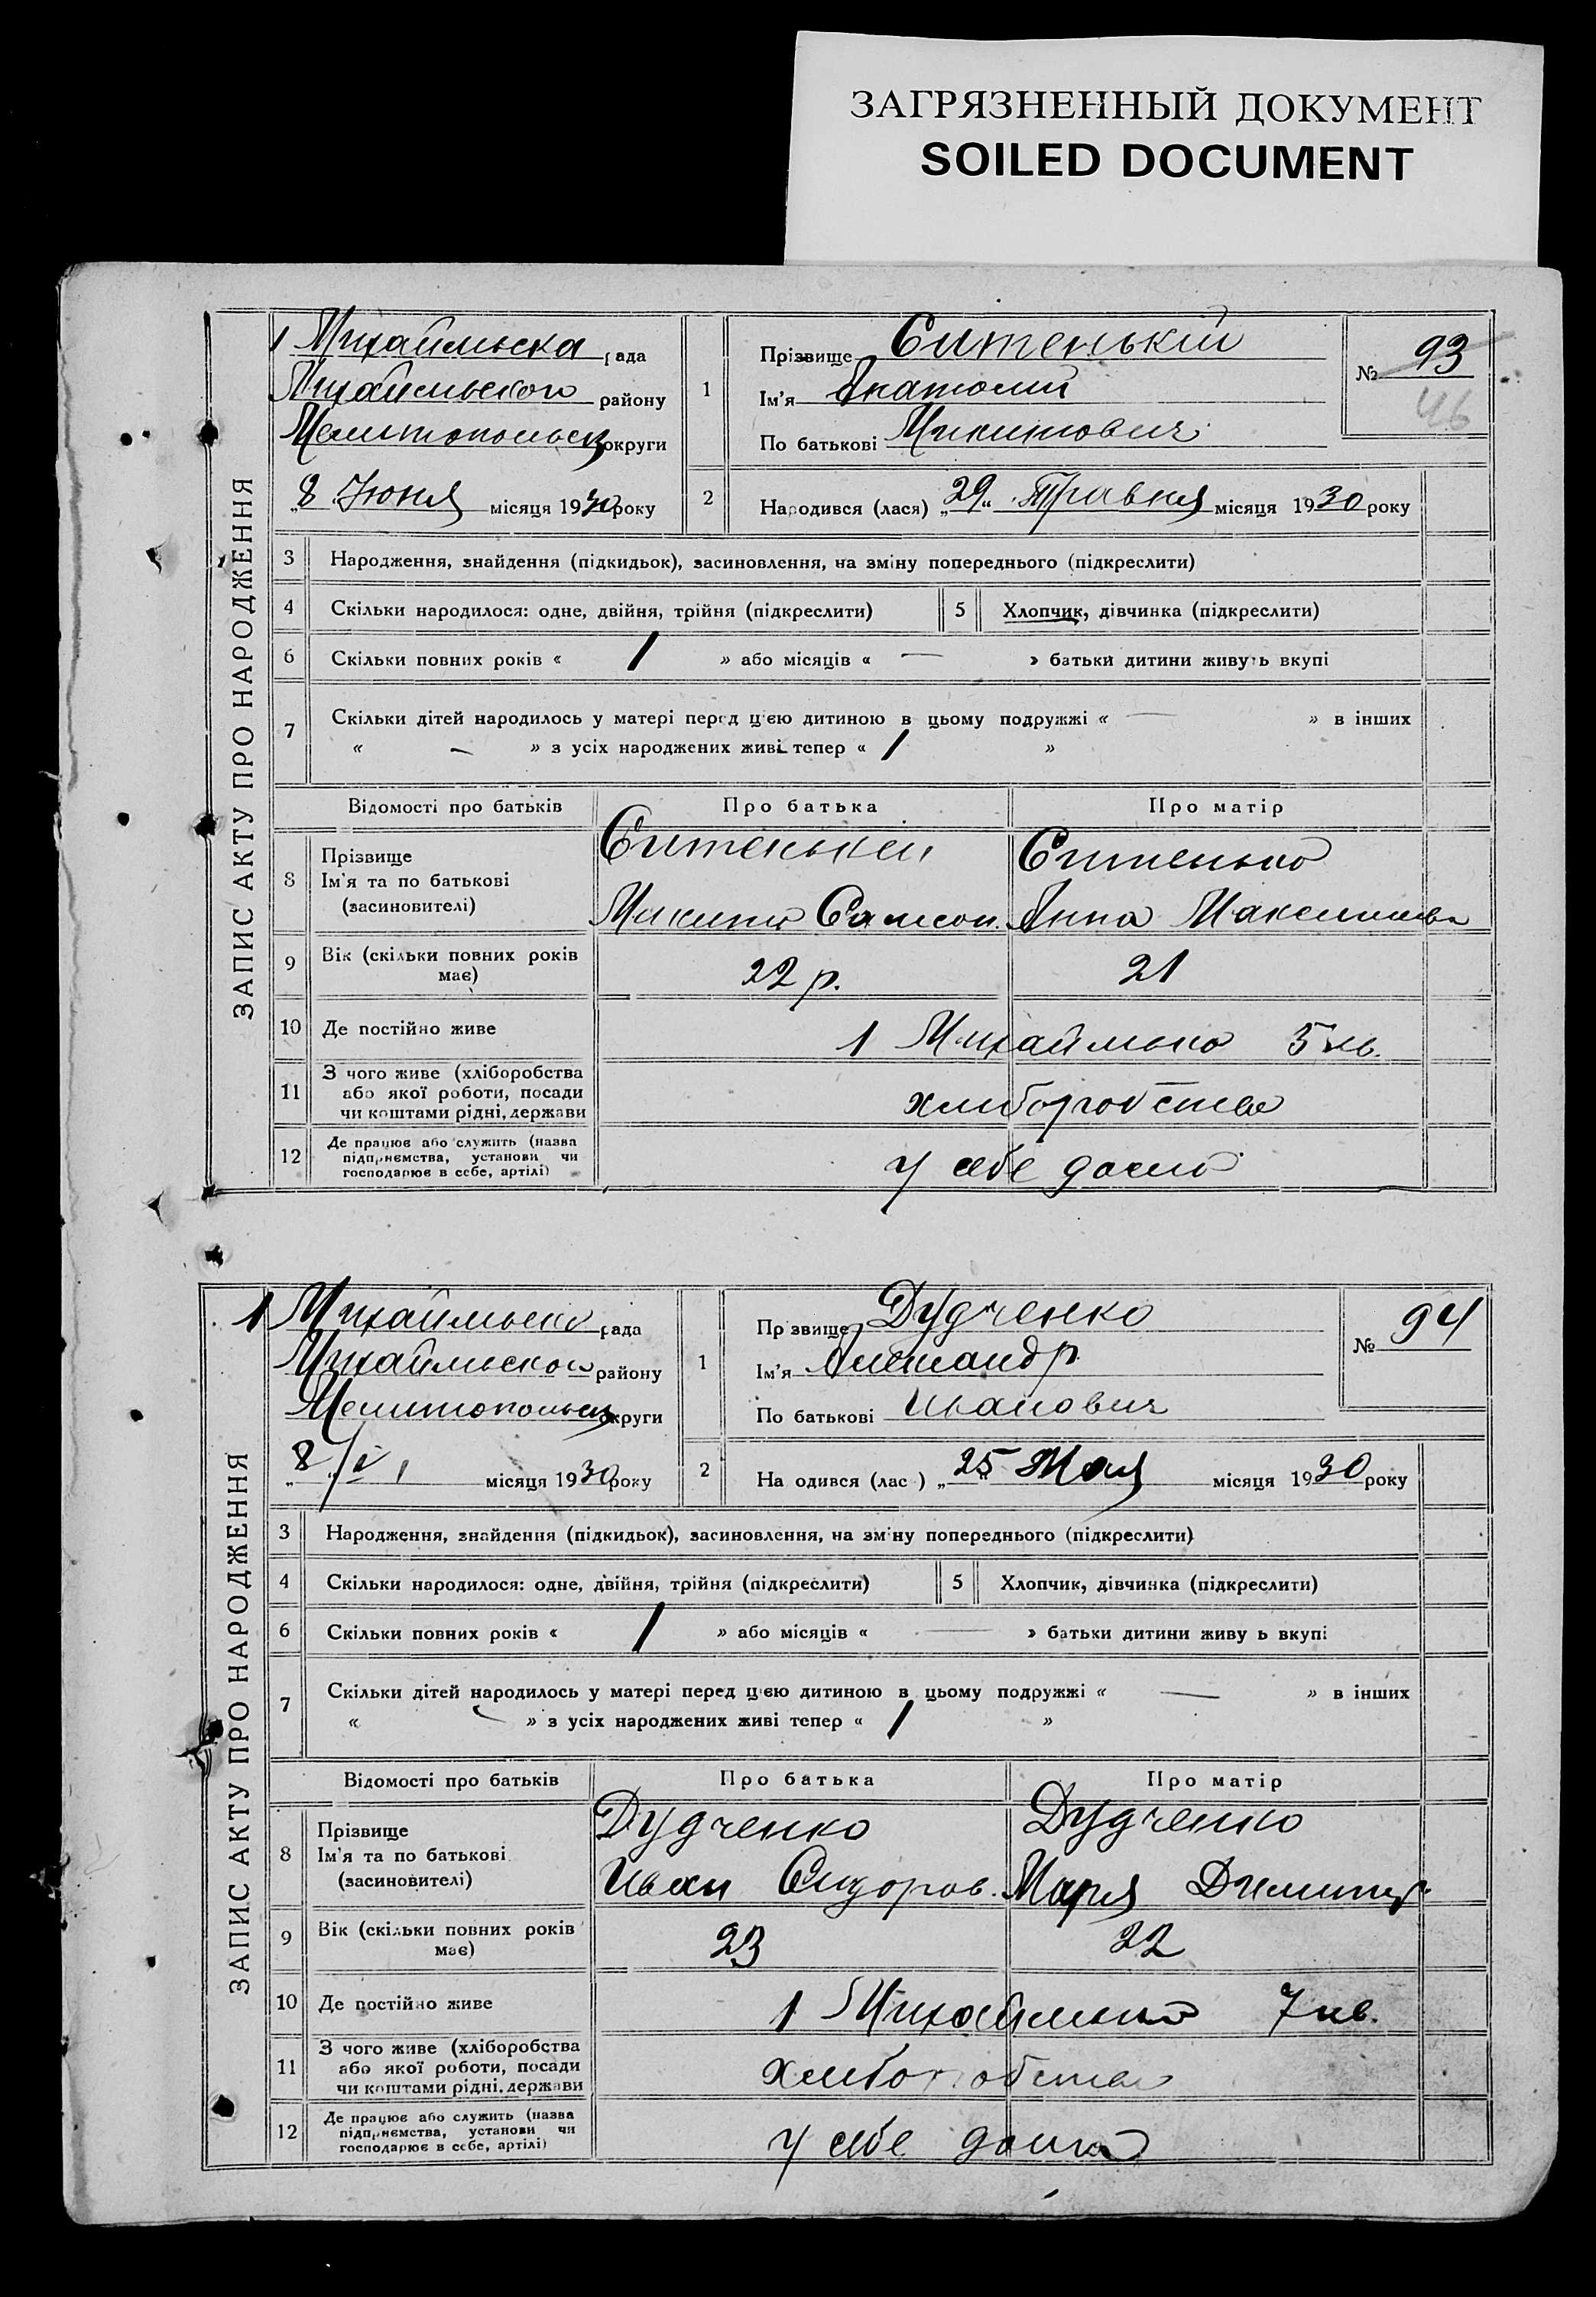 ЗАГРЯЗНЕННЫЙ ДОКУМЕНТ
SOILED DOCUMENT
ЗАПИС АКТУ ПРО НАРОДЖЕННЯ
1 Михайлівська рада
Михайлівського району
Мелитопольськ округи
„8 Июня місяця 1930 року
1
Прізвище Ситенький
Ім'я Анатолий
По батькові Микитович
№ 93
46
2
Народився (лася) „29“ Травня місяця 1930 року
3 Народження, знайдення (підкидьок), засиновлення, на зміну попереднього (підкреслити)
4 Скільки народилося: одне, двійня, трійня (підкреслити) 5 Хлопчик, дівчинка (підкреслити)
6 Скільки повних років « 1 » або місяців « — » батьки дитини живуть вкупі
7 Скільки дітей народилось у матері перед цією дитиною в цьому подружжі « — » в інших
« — » з усіх народжених живі тепер « 1 »
Відомості про батьків Про батька Про матір
8 Прізвище
Ім'я та по батькові
(засиновителі)
Ситенький
Микита Самсон.
Ситенько
Анна Максимовна
9 Вік (скільки повних років має) 22 р. 21
10 Де постійно живе 1 Михайлівка 5 кв.
11 З чого живе (хліборобства
або якої роботи, посади
чи коштами рідні, держави
хліборобства
12 Де працює або служить (назва
підприємства, установи чи
господарює в себе, артілі)
у себе дома
ЗАПИС АКТУ ПРО НАРОДЖЕННЯ
1 Михайлівська рада
Михайлівського району
Мелитопольськ округи
„8/VI місяця 1930 року
1
Прізвище Дудченко
Ім'я Александр
По батькові Иванович
№ 94
2
На одився (лас ) „25“ Мая місяця 1930 року
3 Народження, знайдення (підкидьок), засиновлення, на зміну попереднього (підкреслити)
4 Скільки народилося: одне, двійня, трійня (підкреслити) 5 Хлопчик, дівчинка (підкреслити)
6 Скільки повних років « 1 » або місяців « — » батьки дитини живу ь вкупі
7 Скільки дітей народилось у матері перед цією дитиною в цьому подружжі « — » в інших
« — » з усіх народжених живі тепер « 1 »
Відомості про батьків Про батька Про матір
8 Прізвище
Ім'я та по батькові
(засиновителі)
Дудченко
Иван Сидоров.
Дудченко
Мария Димитр.
9 Вік (скільки повних років має) 23 22
10 Де постійно живе 1 Михайлівка 7 кв.
11 З чого живе (хліборобства
або якої роботи, посади
чи коштами рідні, держави
хліборобства
12 Де працює або служить (назва
підприємства, установи чи
господарює в себе, артілі)
у себе дома